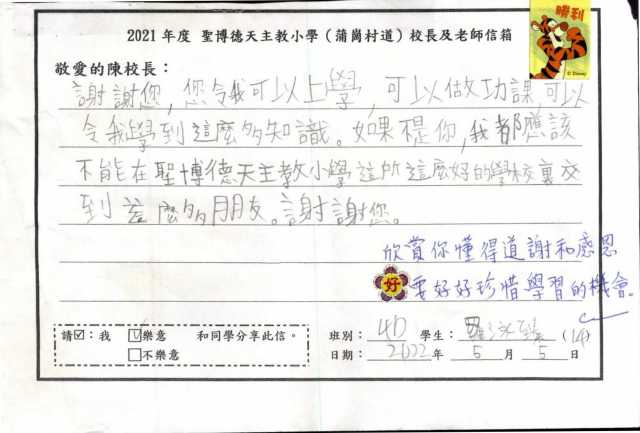 勝利
© Disney
2021 年度 聖博德天主教小學（蒲崗村道）校長及老師信箱
敬愛的陳校長：
謝謝您，您令我可以上學，可以做功課，可以
令我學到這麼多知識。如果不是你，我都應該
不能在聖博德天主教小學這所這麼好的學校裏交
到這麼多朋友。謝謝您。
欣賞你懂得道謝和感恩
好 要好好珍惜學習的機會。
請☑：我 ☑樂意 和同學分享此信。
□不樂意
班別： 4D 學生： 羅 (14)
日期： 2022 年 5 月 5 日